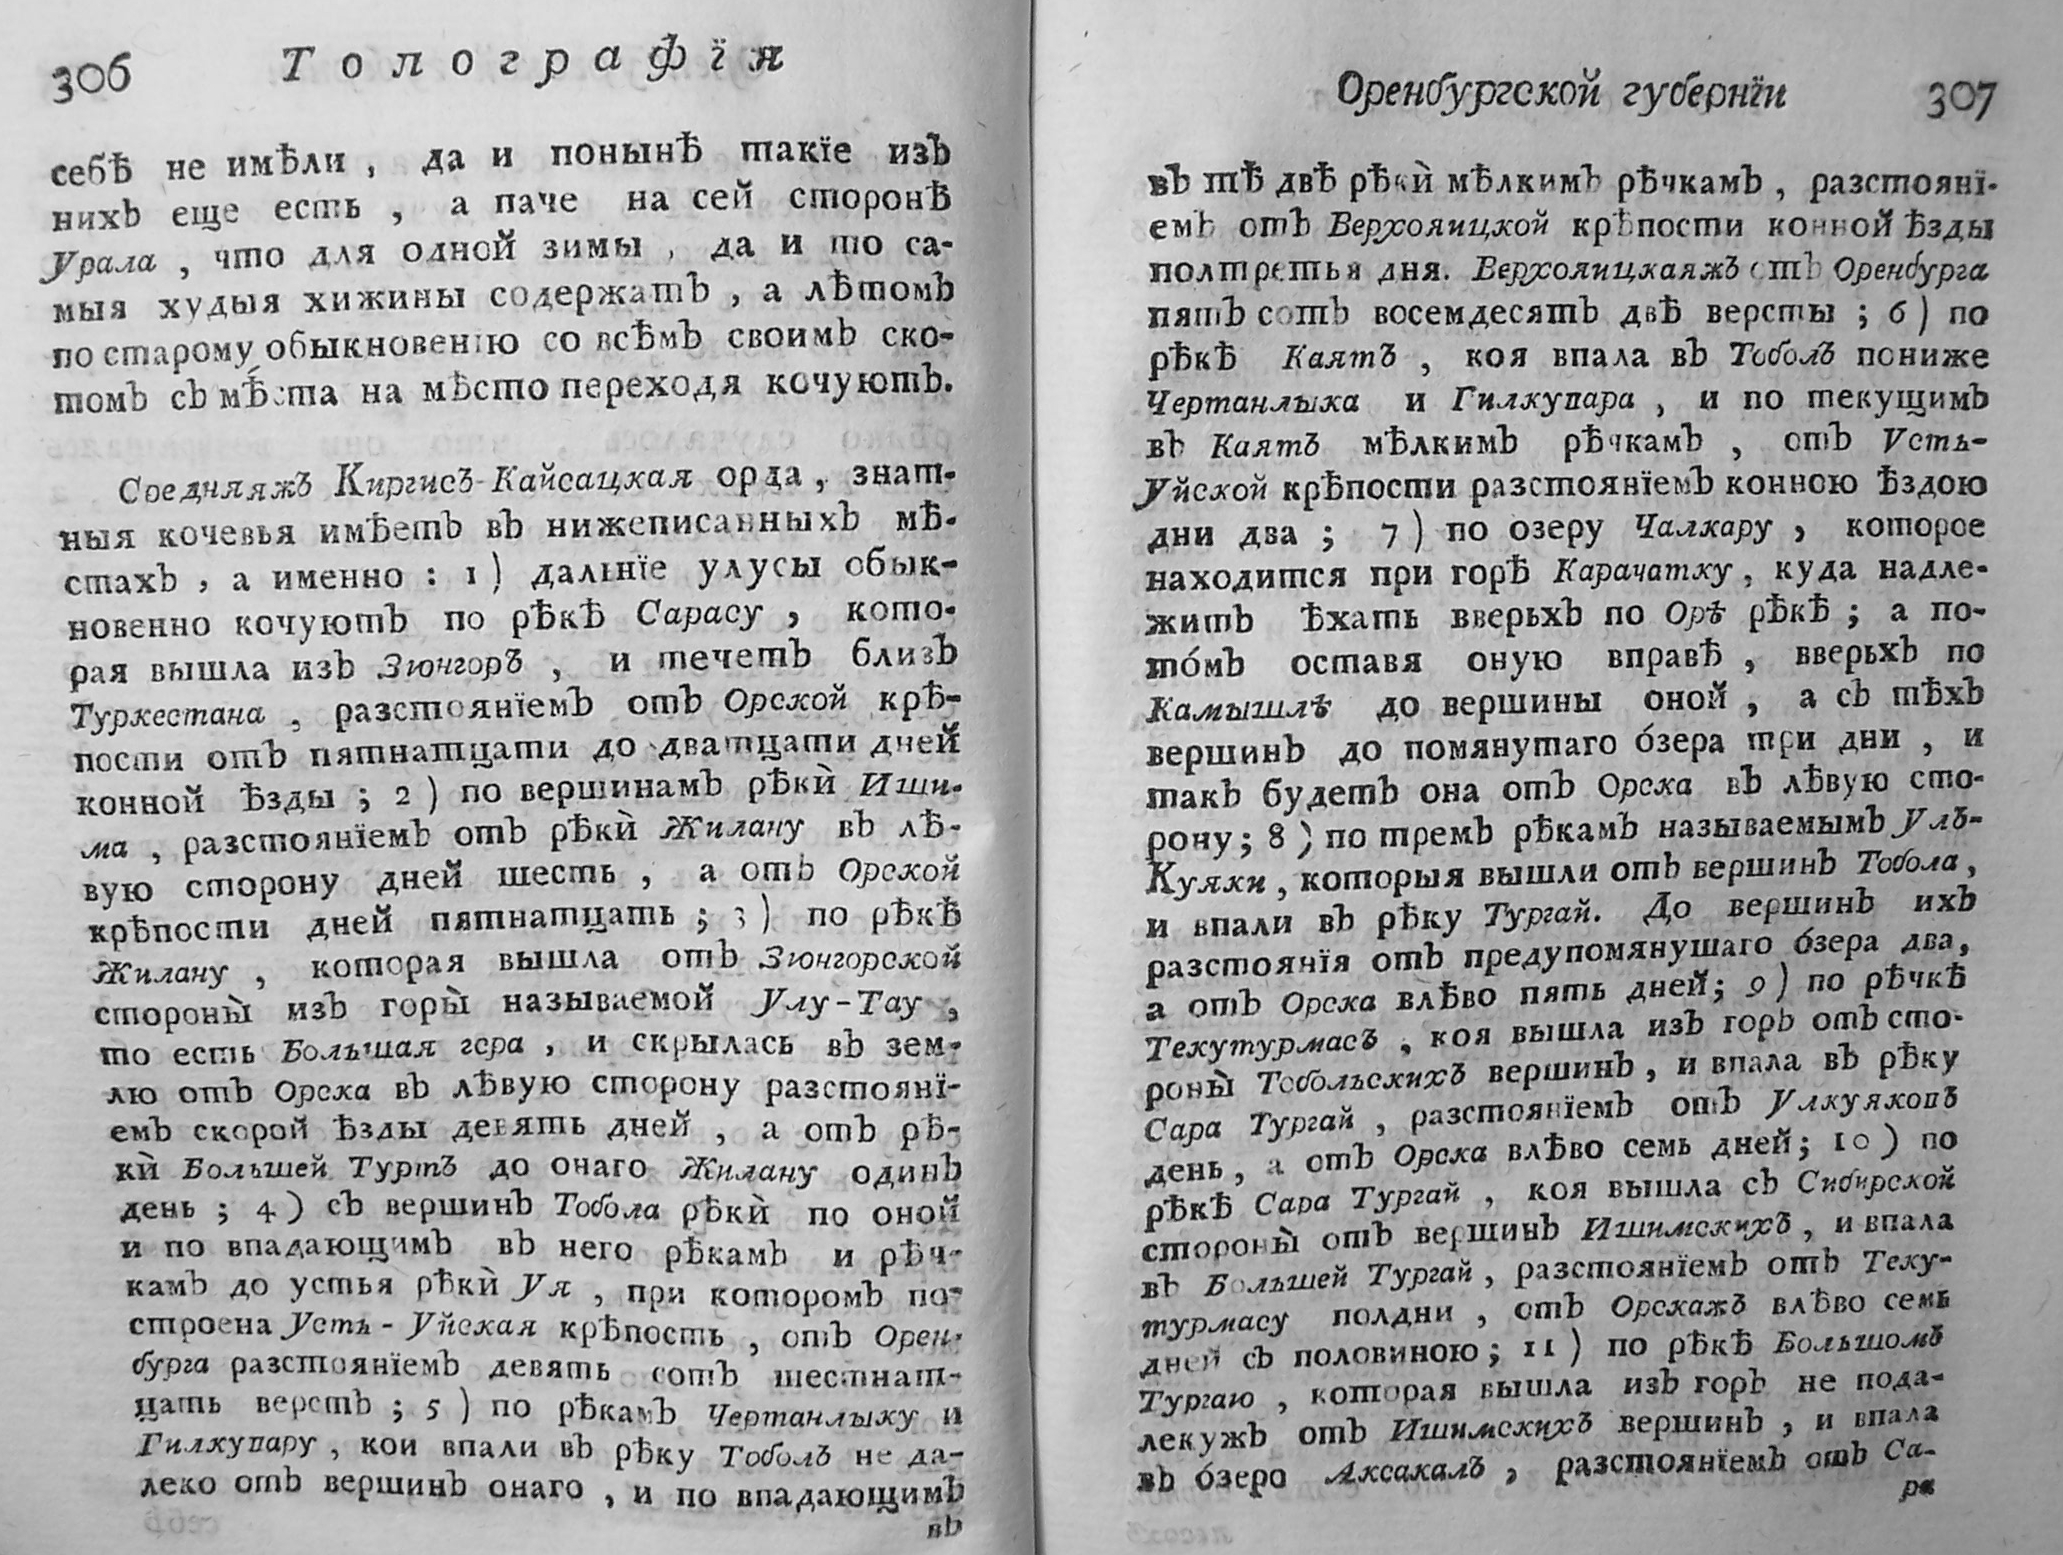 306 Топографїя
себѣ не имѣли , да и понынѣ такїе изъ
нихъ еще есть , а паче на сей сторонѣ
Урала , что для одной зимы , да и то са-
мыя худыя хижины содержатъ , а лѣтомъ
по старому обыкновенїю со всѣмъ своимъ ско-
томъ съ мѣста на мѣсто переходя кочуютъ.
Средняяжъ Киргисъ-Кайсацкая орда , знат-
ныя кочевья имѣетъ въ нижеписанныхъ мѣ-
стахъ , а именно : 1 ) дальнїе улусы обык-
новенно кочуютъ по рѣкѣ Сарасу , кото-
рая вышла изъ Зюнгоръ , и течетъ близъ
Туркестана , разстоянїемъ отъ Орской крѣ-
пости отъ пятнатцати до дватцати дней
конной ѣзды ; 2 ) по вершинамъ рѣкѝ Иши-
ма , разстоянїемъ отъ рѣкѝ Жилану въ лѣ-
вую сторону дней шесть , а отъ Орской
крѣпости дней пятнатцать ; 3 ) по рѣкѣ
Жилану , которая вышла отъ Зюнгорской
стороны̀ изъ горы̀ называемой Улу-Тау ,
то есть Большая гора , и скрылась въ зем-
лю отъ Орска въ лѣвую сторону разстоянї-
емъ скорой ѣзды девять дней , а отъ рѣ-
кѝ Большей Туртъ до онаго Жилану одинъ
день ; 4 ) съ вершинъ Тобола рѣкѝ по оной
и по впадающимъ въ него рѣкамъ и рѣч-
камъ до устья рѣкѝ Уя , при которомъ по-
строена Усть - Уйская крѣпость , отъ Орен-
бурга разстоянїемъ девять сотъ шестнат-
цать верстъ ; 5 ) по рѣкамъ Чертанлыку и
Гилкупару , кои впали въ рѣку Тоболъ не да-
леко отъ вершинъ онаго , и по впадающимъ
въ
Оренбургской губернїи 307
въ тѣ двѣ рѣкѝ мѣлкимъ рѣчкамъ , разстоянї-
емъ отъ Верхояицкой крѣпости конной ѣзды
полтретья дня. Верхояицкаяжъ отъ Оренбурга
пять сотъ восемдесятъ двѣ версты ; 6 ) по
рѣкѣ Каятъ , коя впала въ Тоболъ пониже
Чертанлыка и Гилкупара , и по текущимъ
въ Каятъ мѣлкимъ рѣчкамъ , отъ Усть-
Уйской крѣпости разстоянїемъ конною ѣздою
дни два ; 7 ) по озеру Чалкару , которое
находится при горѣ Карачатку , куда надле-
житъ ѣхать вверьхъ по Орѣ рѣкѣ ; а по-
то́мъ оставя оную вправѣ , вверьхъ по
Камышлѣ до вершины оной , а съ тѣхъ
вершинъ до помянутаго о́зера три дни , и
такъ будетъ она отъ Орска въ лѣвую сто-
рону ; 8 ) по тремъ рѣкамъ называемымъ Улъ-
Куяки , которыя вышли отъ вершинъ Тобола ,
и впали въ рѣку Тургай. До вершинъ ихъ
разстоянїя отъ предупомянушаго о́зера два,
а отъ Орска влѣво пять дней ; 9 ) по рѣчкѣ
Текутурмасъ , коя вышла изъ горъ отъ сто-
роны̀ Тобольскихъ вершинъ , и впала въ рѣку
Сара Тургай , разстоянїемъ отъ Улкуяковъ
день , а отъ Орска влѣво семь дней ; 10 ) по
рѣкѣ Сара Тургай , коя вышла съ Сибирской
стороны̀ отъ вершинъ Ишимскихъ , и впала
въ Большей Тургай , разстоянїемъ отъ Теку-
турмасу полдни , отъ Орскажъ влѣво семь
дней съ половиною ; 11 ) по рѣкѣ Большомъ
Тургаю , которая вышла изъ горъ не пода-
лекужъ отъ Ишимскихъ вершинъ , и впала
въ о́зеро Аксакалъ , разстоянїемъ отъ Са-
ра